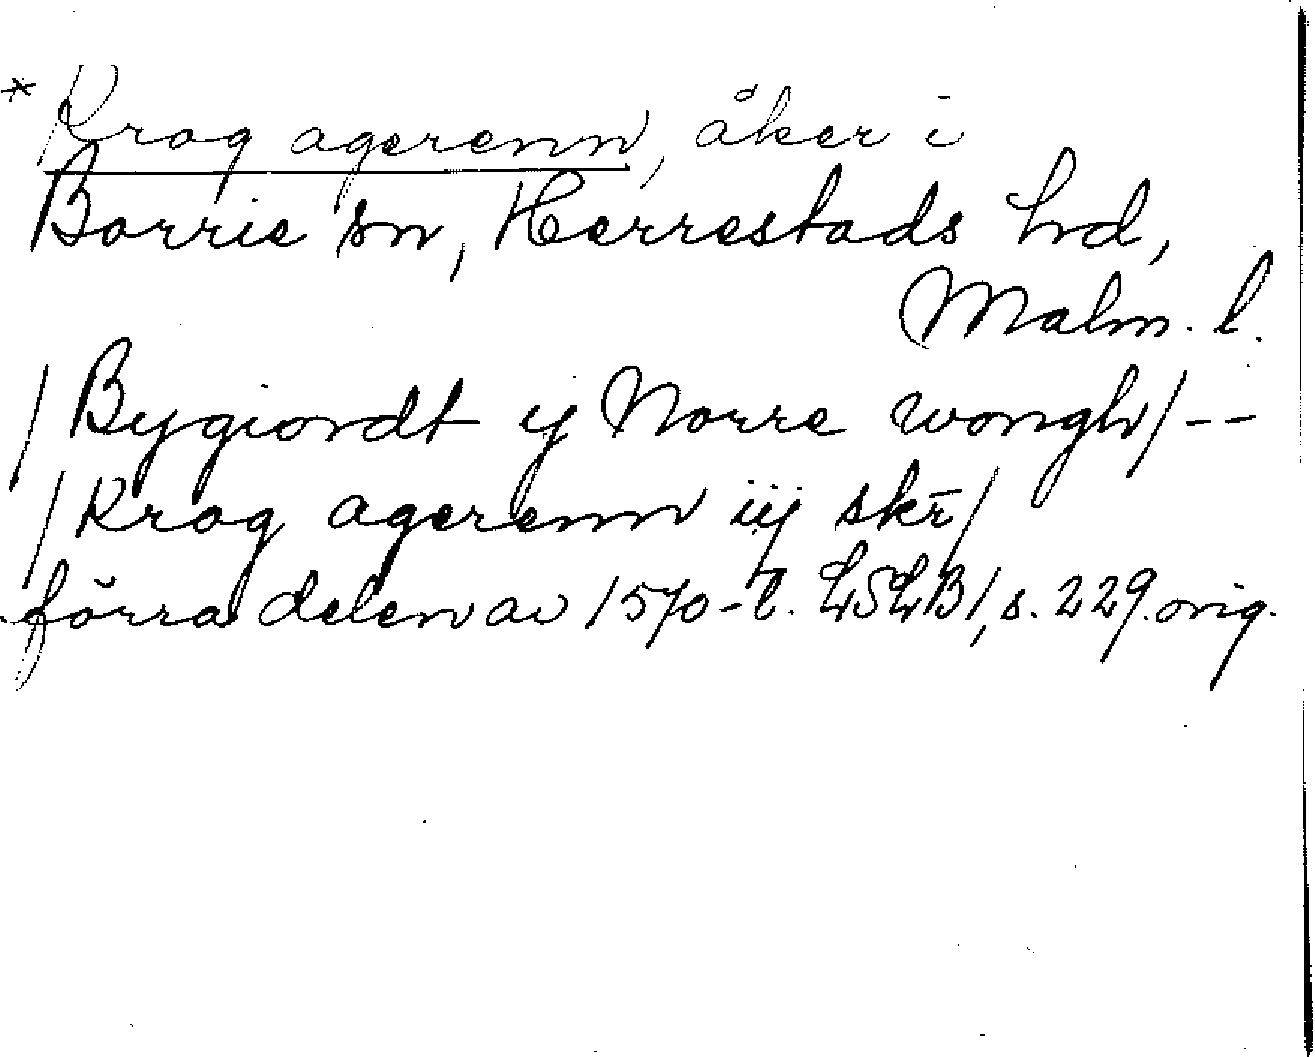 * Krog agerenn, åker i
Borrie sn, Herrestads hd,
Malm. l.
/Bygiordt ij Norre wongh/--
/Krog agerenn iij skr̄/
förra delen av 1570-t. LSLB1, s. 229. orig.